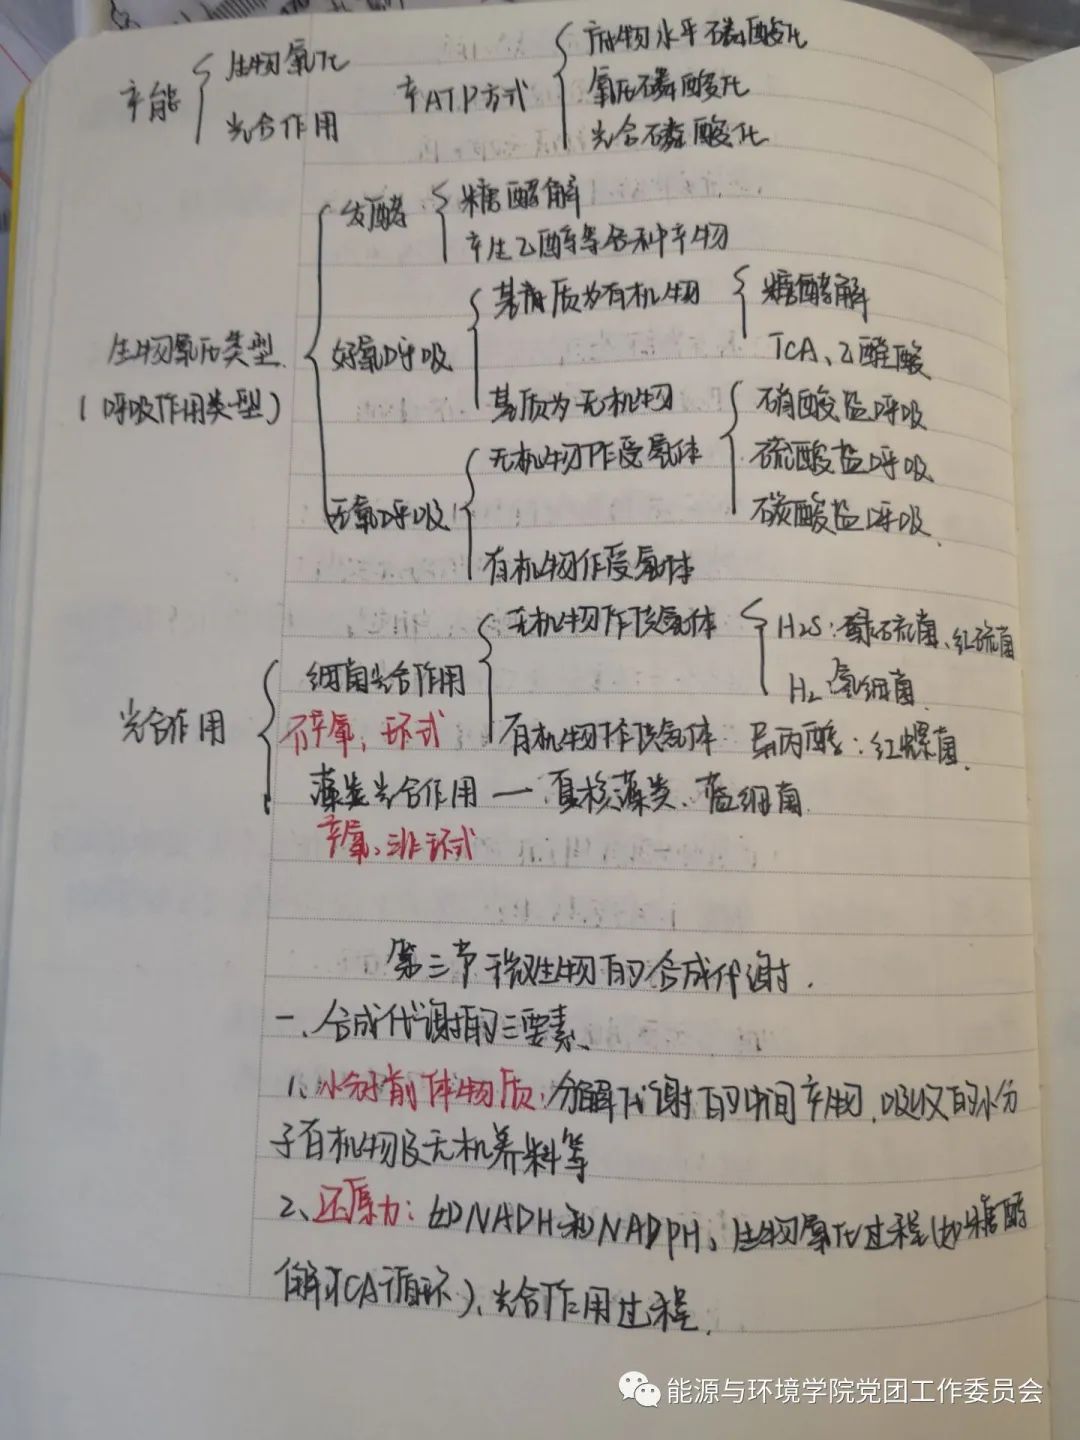 产能 生物氧化 光合作用
产ATP方式 底物水平磷酸化
氧化磷酸化
光合磷酸化
发酵 糖酵解
产生乙醇等各种产物
生物氧化类型
(呼吸作用类型)
好氧呼吸 基质为有机物 糖酵解
TCA、乙醛酸
基质为无机物
无氧呼吸 无机物作受氢体 硝酸盐呼吸
硫酸盐呼吸
碳酸盐呼吸.
有机物作受氢体
光合作用
细菌光合作用 无机物作供氢体 H2S: 硫菌、红硫菌
不产氧,环式 H2 氢细菌
有机物作供氢体 异丙醇:红螺菌.
藻类光合作用 — 真核藻类、蓝细菌.
产氧、非环式
第三节 微生物的合成代谢.
一、合成代谢的三要素、
1、小分子前体物质:分解代谢的中间产物,吸收的小分
子有机物及无机养料等
2、还原力:如NADH和NADPH、生物氧化过程(如糖酵
解TCA循环)、光合作用过程.
能源与环境学院党团工作委员会